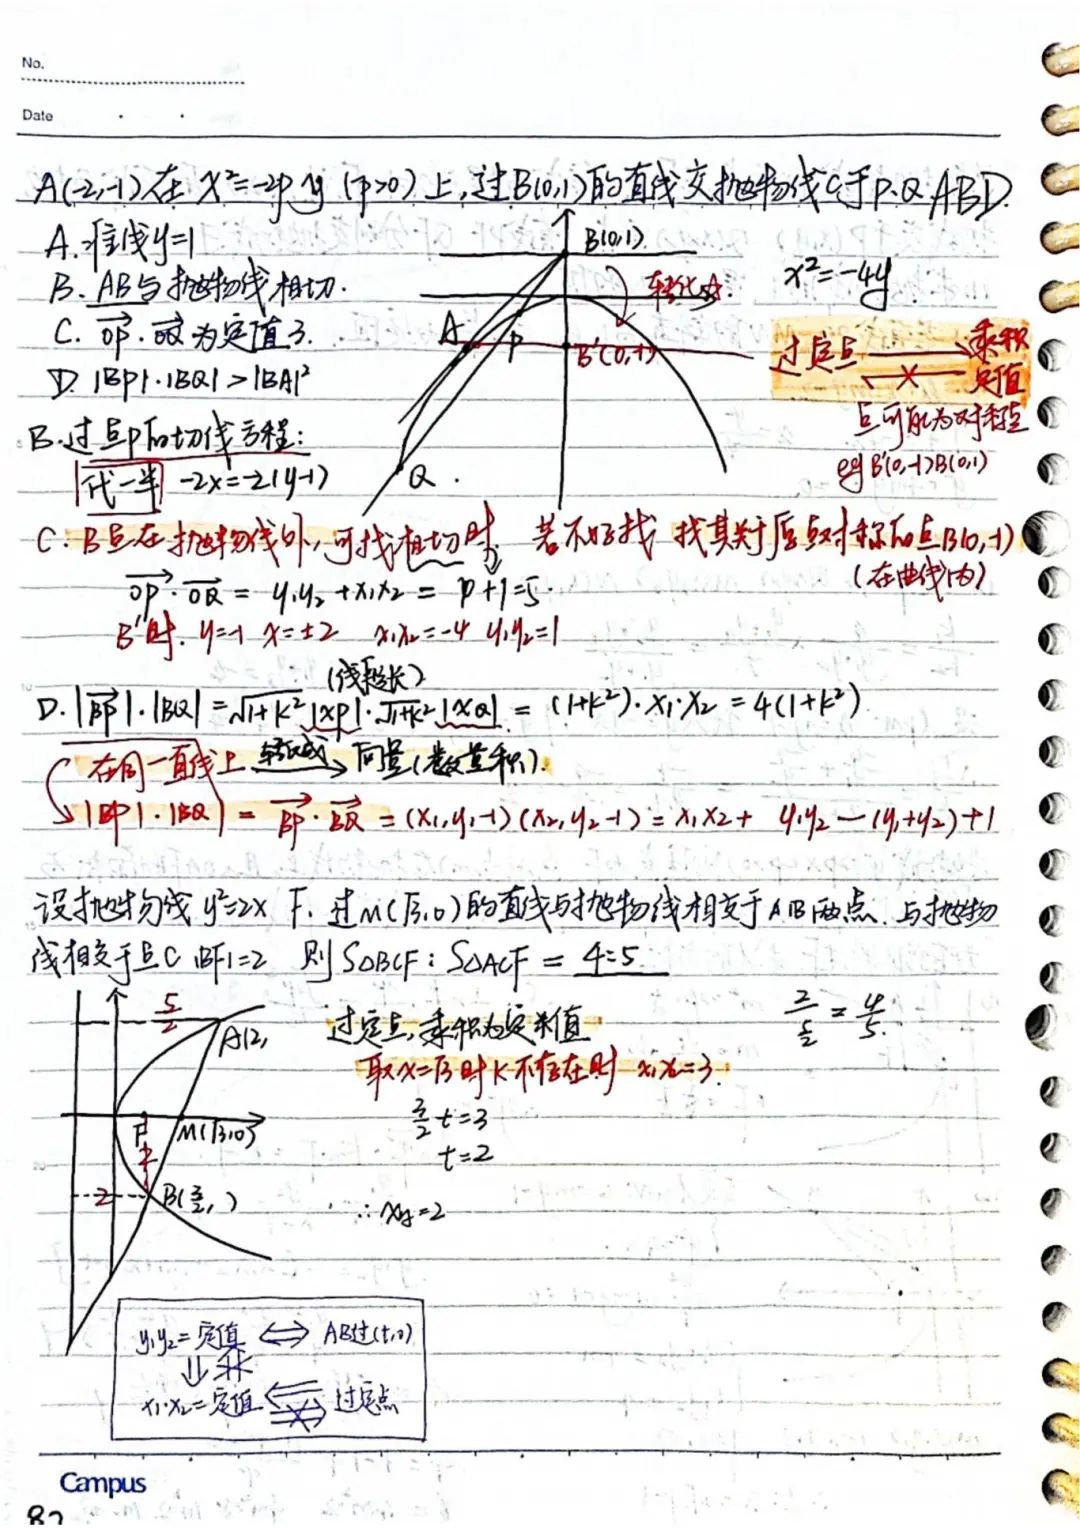 No.
Date
A(-2,-1)在 x²=-2py (p>0)上,过B(0,1)的直线交抛物线C于P.Q ABD
A.准线y=1
B. AB与抛物线相切.
C. OP·OQ为定值3.
D. |BP|·|BQ|>|BA|²
B(0,1)
转化成
x²=-4y
A
P
B'(0,-1)
Q.
过定点 乘积定值
点可能为对称点
eg B'(0,-1)B(0,1)
B.过点P的切线方程:
代一半 -2x=-2(y-1)
C: B点在抛物线外,可找相切时, 若不好找 找其关于原点对称的点B(0,-1)
(在曲线内)
OP·OQ = y₁y₂+x₁x₂ = p+1=5.
B'时. y=-1 x=±2 x₁x₂=-4 y₁y₂=1
(线段长)
D.|BP|·|BQ|=√1+k² |xP|·√1+k² |xQ| = (1+k²)·x₁·x₂ = 4(1+k²)
在同一直线上 转化成 向量(数量积).
|BP|·|BQ| = BP·BQ = (x₁,y₁-1)(x₂,y₂-1)=x₁x₂+ y₁y₂-(y₁+y₂)+1
设抛物线 y²=2x F. 过M(√3,0)的直线与抛物线相交于A,B两点,与抛物
线相交于点C |BF|=2 则S△BCF:S△ACF = 4:5
5/2
A(2,
F
M(√3,0)
2
2
B(3/2, )
过定点,乘积为定值
取x=√3时k不存在时 x₁x₂=3.
3/2 t=3
t=2
2/(5/2) = 4/5.
y₁y₂=定值 ⇔ AB过(t,0)
x₁·x₂=定值 过定点
Campus